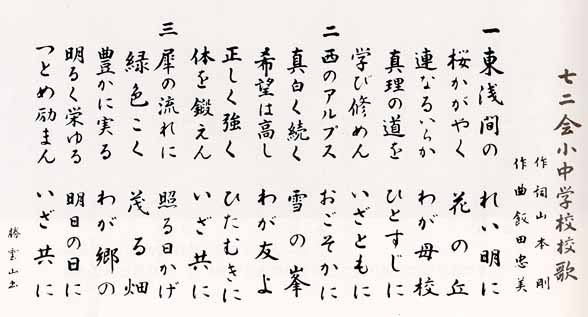 七二会小中学校校歌
作詞 山本 剛
作曲 飯田忠美
一 東浅間の れい明に
桜かがやく 花の丘
連なるいらか わが母校
真理の道を ひとすじに
学び修めん いざともに
二 西のアルプス おごそかに
真白く続く 雪の峯
希望は高し わが友よ
正しく強く ひたむきに
体を鍛えん いざ共に
三 犀の流れに 照る日かげ
緑色こく 茂る畑
豊かに実る わが郷の
明るく栄ゆる 明日の日に
つとめ励まん いざ共に